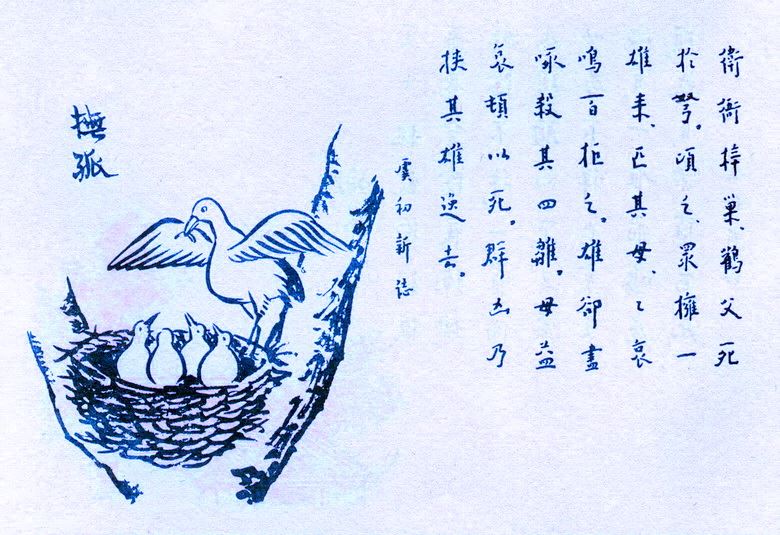 衛衙梓巢、鶴父死
於弩。頃之、眾擁一
雄來、匹其母、〻哀
鳴百拒之。雄卻盡
啄殺其四雛。母益
哀頓以死。群凶乃
挾其雄逸去。
虞初新誌
撫孤